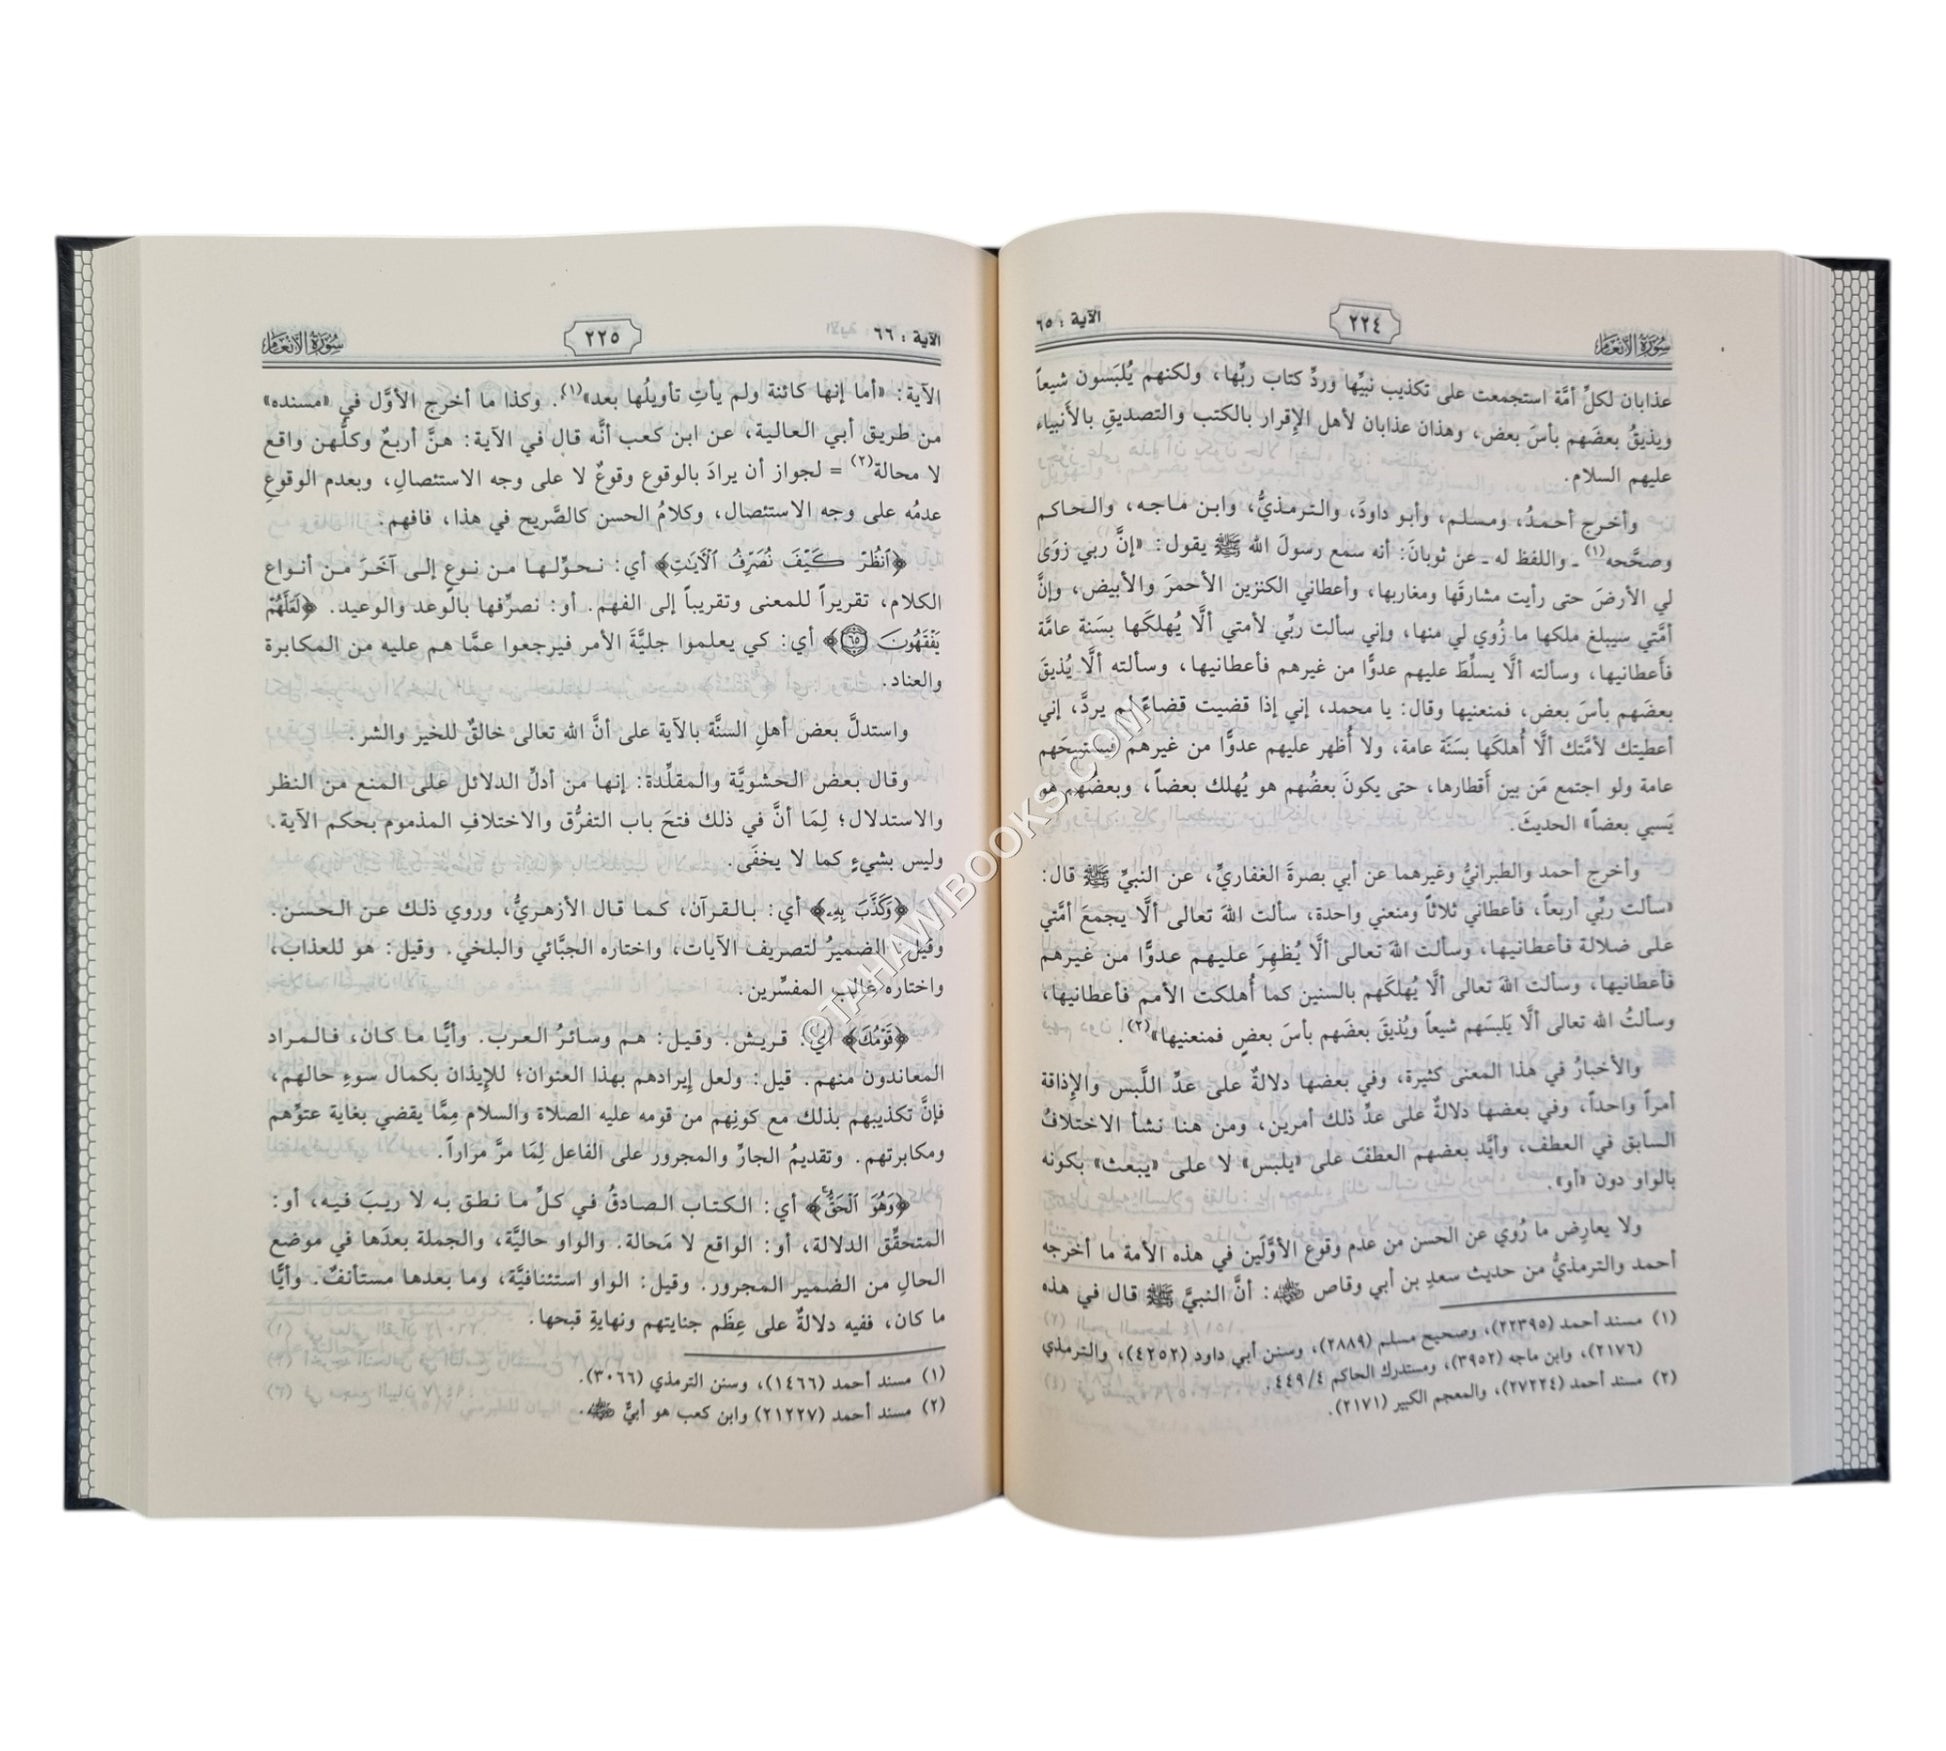 سُورَةُ الأَنْعَام
٢٢٤
الآية : ٦٥
عذابان لكلِّ أمَّة استجمعت على تكذيب نبيِّها وردِّ كتاب ربِّها، ولكنهم يُلبَسون شيعاً
ويذيقُ بعضَهم بأسَ بعض، وهذان عذابان لأهل الإقرار بالكتب والتصديقِ بالأنبياء
عليهم السلام.
وأخرج أحمدُ، ومسلم، وأبو داودَ، والترمذيُّ، وابن ماجه، والحاكم
وصحَّحه(١) ـ واللفظ له ـ عن ثوبانَ: أنه سمع رسولَ الله ﷺ يقول: «إنَّ ربي زوَى
لي الأرضَ حتى رأيت مشارقَها ومغاربها، وأعطاني الكنزين الأحمرَ والأبيض، وإنَّ
أمَّتي سيبلغ ملكها ما زُوي لي منها، وإني سألت ربِّي لأمتي ألَّا يُهلكَها بسَنة عامَّة
فأعطانيها، وسألته ألَّا يسلِّطَ عليهم عدوًّا من غيرهم فأعطانيها، وسألته ألَّا يُذيقَ
بعضَهم بأسَ بعض، فمنعنيها وقال: يا محمد، إني إذا قضيت قضاءً لم يردَّ، إني
أعطيتك لأمَّتك ألَّا أُهلكَها بسَنَة عامة، ولا أُظهر عليهم عدوًّا من غيرهم فيستبيحَهم
عامة ولو اجتمع مَن بين أَقطارها، حتى يكونَ بعضُهم هو يُهلك بعضاً، وبعضُهم هو
يَسبي بعضاً» الحديثَ.
وأخرج أحمد والطبرانيُّ وغيرهما عن أبي بصرةَ الغفاريِّ، عن النبيِّ ﷺ قال:
«سألت ربِّي أربعاً، فأعطاني ثلاثاً ومنعني واحدة، سألت اللهَ تعالى ألَّا يجمعَ أمَّتي
على ضلالة فأعطانيها، وسألت اللهَ تعالى ألَّا يُظهِرَ عليهم عدوًّا من غيرهم
فأعطانيها، وسألت اللهَ تعالى ألَّا يُهلكَهم بالسنين كما أُهلكت الأمم فأعطانيها،
وسألتُ الله تعالى ألَّا يَلبَسَهم شيعاً ويُذيقَ بعضَهم بأسَ بعضٍ فمنعنيها»(٢).
والأخبارُ في هذا المعنى كثيرة، وفي بعضها دلالةٌ على عدِّ اللَّبس والإذاقة
أمراً واحداً، وفي بعضها دلالةٌ على عدِّ ذلك أمرين، ومن هنا نشأ الاختلافُ
السابق في العطف، وأيَّد بعضهم العطفَ على «يلبس» لا على «يبعث» بكونه
بالواو دون «أو».
ولا يعارِض ما رُوي عن الحسن من عدم وقوع الأوَّلَين في هذه الأمة ما أخرجه
أحمد والترمذيُّ من حديث سعدِ بن أبي وقاص رضي الله عنه: أنَّ النبيَّ ﷺ قال في هذه
(١) مسند أحمد (٢٢٣٩٥)، وصحيح مسلم (٢٨٨٩)، وسنن أبي داود (٤٢٥٢)، والترمذي
(٢١٧٦)، وابن ماجه (٣٩٥٢)، ومستدرك الحاكم ٤/ ٤٤٩.
(٢) مسند أحمد (٢٧٢٢٤)، والمعجم الكبير (٢١٧١).
الآية : ٦٦
٢٢٥
سُورَةُ الأَنْعَام
الآية: «أما إنها كائنة ولم يأتِ تأويلُها بعد»(١). وكذا ما أخرج الأوَّل في «مسنده»
من طريق أبي العالية، عن ابن كعب أنَّه قال في الآية: هنَّ أربعٌ وكلُّهن واقع
لا محالة(٢) = لجواز أن يرادَ بالوقوع وقوعٌ لا على وجه الاستئصالِ، وبعدم الوقوعِ
عدمُه على وجه الاستئصال، وكلامُ الحسن كالصَّريح في هذا، فافهم.
﴿ٱنظُرْ كَيْفَ نُصَرِّفُ ٱلْأَيَٰتِ﴾ أي: نحوِّلها من نوعٍ إلى آخَرَ من أنواع
الكلام، تقريراً للمعنى وتقريباً إلى الفهم. أو: نصرِّفها بالوعد والوعيد. ﴿لَعَلَّهُمْ
يَفْقَهُونَ ٦٥﴾ أي: كي يعلموا جليَّةَ الأمر فيرجعوا عمَّا هم عليه من المكابرة
والعناد.
واستدلَّ بعض أهلِ السنَّة بالآية على أنَّ الله تعالى خالقٌ للخير والشر.
وقال بعض الحشويَّة والمقلِّدة: إنها من أدلِّ الدلائل على المنع من النظر
والاستدلال؛ لِمَا أنَّ في ذلك فتحَ باب التفرُّق والاختلافِ المذموم بحكم الآية.
وليس بشيءٍ كما لا يخفَى.
﴿وَكَذَّبَ بِهِۦ﴾ أي: بالقرآن، كما قال الأزهريُّ، وروي ذلك عن الحسن.
وقيل: الضميرُ لتصريف الآيات، واختاره الجبَّائي والبلخي. وقيل: هو للعذاب،
واختاره غالب المفسِّرين.
﴿قَوْمُكَ﴾ أي: قريش. وقيل: هم وسائرُ العرب. وأيًّا ما كان، فالمراد
المعاندون منهم. قيل: ولعل إيرادهم بهذا العنوان؛ للإيذان بكمال سوءِ حالهم،
فإنَّ تكذيبهم بذلك مع كونِهم من قومه عليه الصلاة والسلام مِمَّا يقضي بغاية عتوِّهم
ومكابرتهم. وتقديمُ الجارِّ والمجرور على الفاعل لِمَا مرَّ مراراً.
﴿وَهُوَ ٱلْحَقُّ﴾ أي: الكتاب الصادقُ في كلِّ ما نطق به لا ريبَ فيه، أو:
المتحقِّق الدلالة، أو: الواقع لا مَحالة. والواو حاليَّة، والجملة بعدَها في موضع
الحالِ من الضمير المجرور. وقيل: الواو استئنافيَّة، وما بعدها مستأنفٌ. وأيًّا
ما كان، ففيه دلالةٌ على عِظَم جنايتهم ونهايةِ قبحها.
(١) مسند أحمد (١٤٦٦)، وسنن الترمذي (٣٠٦٦).
(٢) مسند أحمد (٢١٢٢٧) وابن كعب هو أبيٌّ رضي الله عنه.
©TAHAWIBOOKS.COM